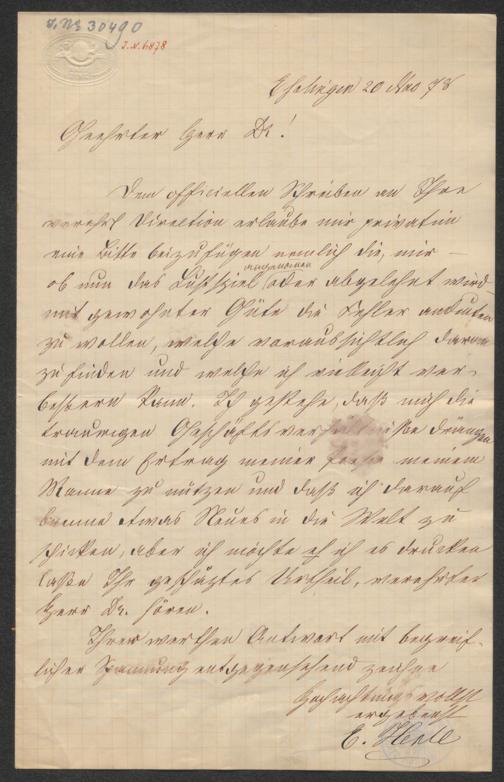 J.Nr 30490
J.N. 6878
20 Nro 78
Geehrter Herr Dr!
Dem officiellen Schreiben an Ihre
verehrl Direktion erlaube mir privatim
eine Bitte beizufügen nemlich die, mir –
ob nun das Lustspiel angenomen oder abgelehnt wird
mit gewohnter Güte die Fehler andeuten
zu wollen, welche voraussichtlich daran
zu finden und welche ich vielleicht ver-
bessern kann. Ich gestehe, daß mich die
traurigen Geschäftsverhältniße drängen
mit dem Ertrag meiner meinem
Manne zu nützen und daß ich darauf
brenne etwas Neues in die Welt zu
schicken, aber ich möchte eh ich es drucken
laße Ihr geschäztes Urtheil, verehrter
Herr Dr. hören.
Ihrer werthen Antwort mit begreif-
licher Spannung entgegensehend zeichne
Hochachtungsvollst
ergebenst
E.